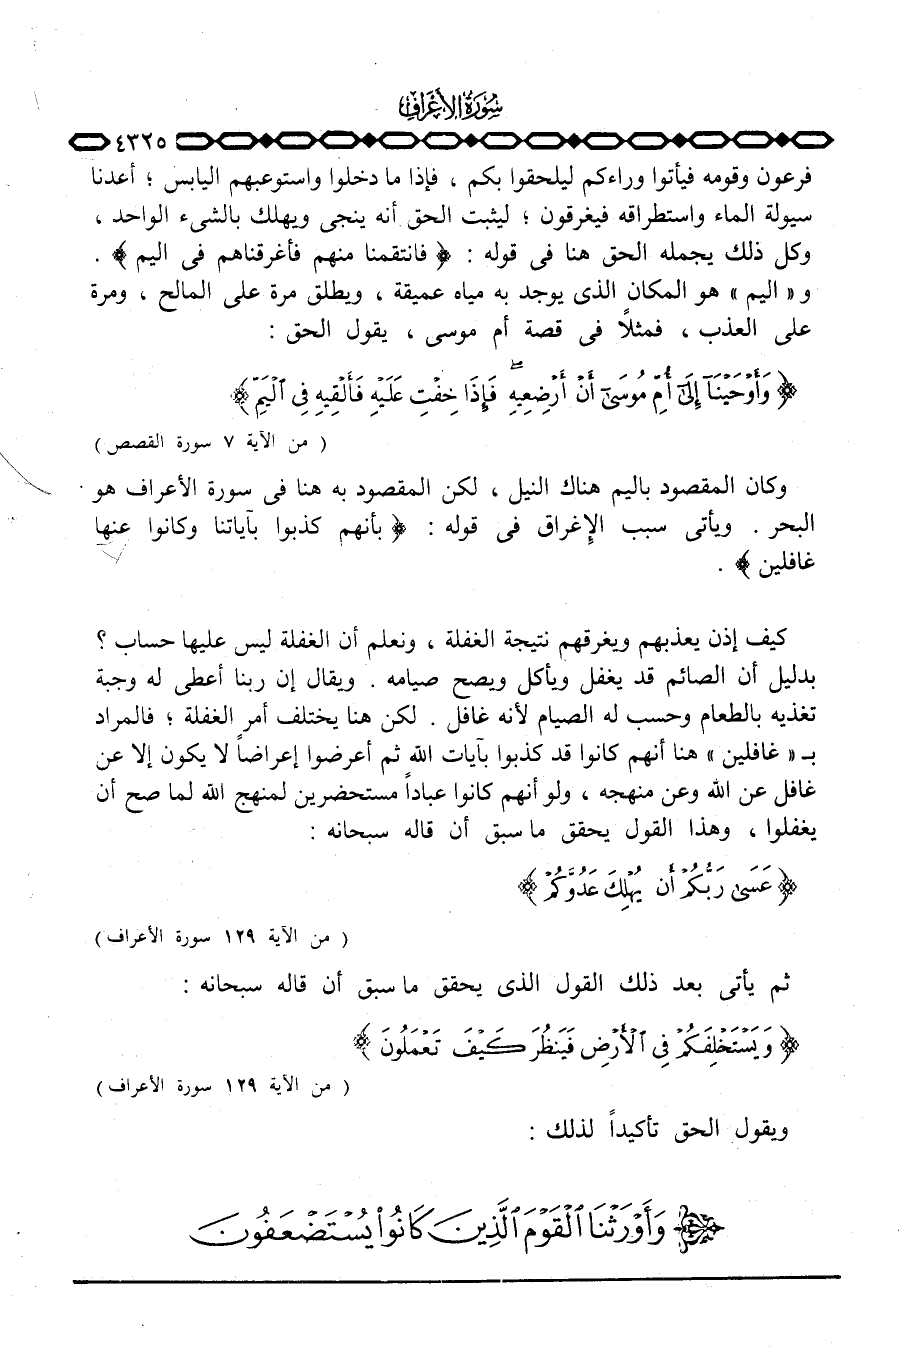 سُورَةُ الأَعْرَاف
٤٣٢٥
فرعون وقومه فيأتوا وراءكم ليلحقوا بكم ، فإذا ما دخلوا واستوعبهم اليابس ؛ أعدنا
سيولة الماء واستطراقه فيغرقون ؛ ليثبت الحق أنه ينجى ويهلك بالشىء الواحد ،
وكل ذلك يجمله الحق هنا فى قوله : ﴿ فانتقمنا منهم فأغرقناهم فى اليم ﴾ .
و« اليم » هو المكان الذى يوجد به مياه عميقة ، ويطلق مرة على المالح ، ومرة
على العذب ، فمثلاً فى قصة أم موسى ، يقول الحق :
﴿ وَأَوْحَيْنَآ إِلَىٰٓ أُمِّ مُوسَىٰٓ أَنْ أَرْضِعِيهِ ۖ فَإِذَا خِفْتِ عَلَيْهِ فَأَلْقِيهِ فِى ٱلْيَمِّ ﴾
( من الآية ٧ سورة القصص )
وكان المقصود باليم هناك النيل ، لكن المقصود به هنا فى سورة الأعراف هو
البحر . ويأتى سبب الإِغراق فى قوله : ﴿ بأنهم كذبوا بآياتنا وكانوا عنها
غافلين ﴾ .
كيف إذن يعذبهم ويغرقهم نتيجة الغفلة ، ونعلم أن الغفلة ليس عليها حساب ؟
بدليل أن الصائم قد يغفل ويأكل ويصح صيامه . ويقال إن ربنا أعطى له وجبة
تغذيه بالطعام وحسب له الصيام لأنه غافل . لكن هنا يختلف أمر الغفلة ؛ فالمراد
بـ « غافلين » هنا أنهم كانوا قد كذبوا بآيات الله ثم أعرضوا إعراضاً لا يكون إلا عن
غافل عن الله وعن منهجه ، ولو أنهم كانوا عباداً مستحضرين لمنهج الله لما صح أن
يغفلوا ، وهذا القول يحقق ما سبق أن قاله سبحانه :
﴿ عَسَىٰ رَبُّكُمْ أَن يُهْلِكَ عَدُوَّكُمْ ﴾
( من الآية ١٢٩ سورة الأعراف )
ثم يأتى بعد ذلك القول الذى يحقق ما سبق أن قاله سبحانه :
﴿ وَيَسْتَخْلِفَكُمْ فِى ٱلْأَرْضِ فَيَنظُرَ كَيْفَ تَعْمَلُونَ ﴾
( من الآية ١٢٩ سورة الأعراف )
ويقول الحق تأكيداً لذلك :
﴿ وَأَوْرَثْنَا ٱلْقَوْمَ ٱلَّذِينَ كَانُوا۟ يُسْتَضْعَفُونَ